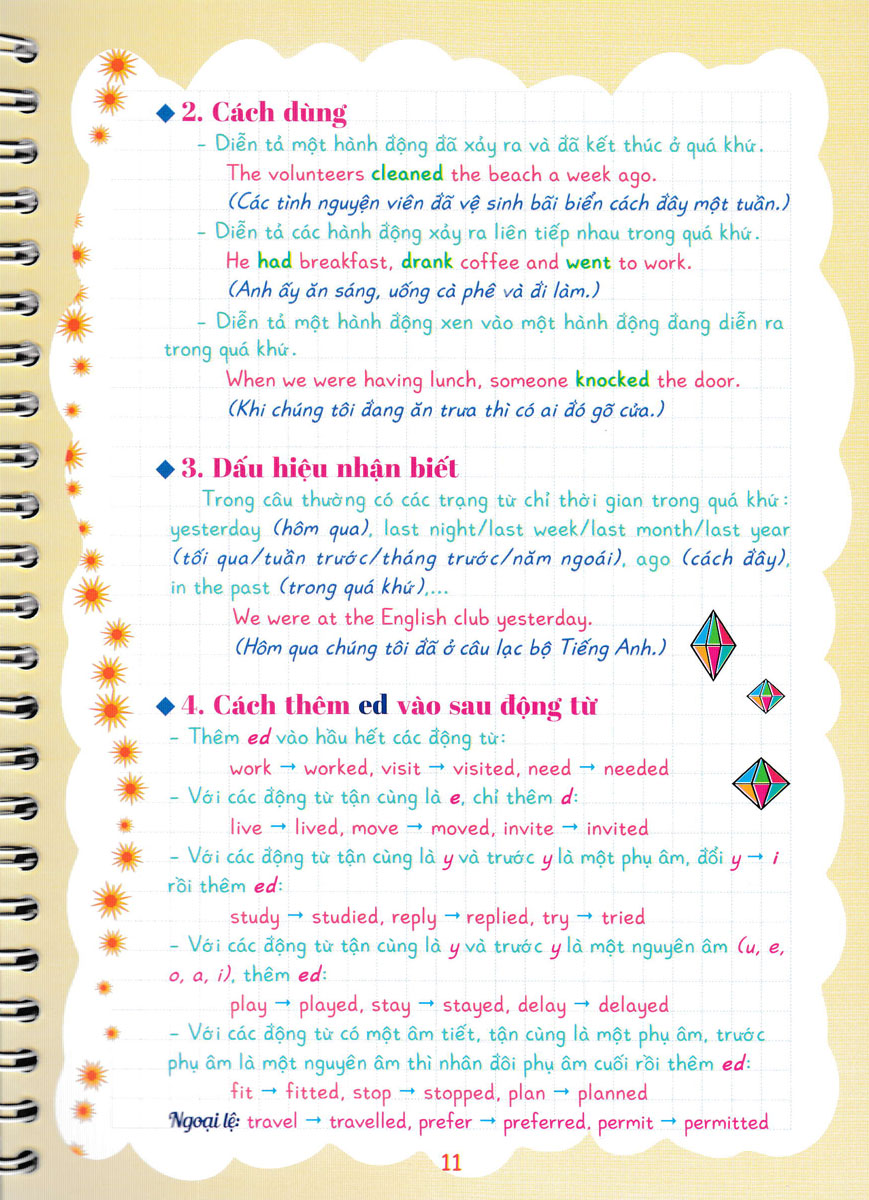 2. Cách dùng
– Diễn tả một hành động đã xảy ra và đã kết thúc ở quá khứ.
The volunteers cleaned the beach a week ago.
(Các tình nguyện viên đã vệ sinh bãi biển cách đây một tuần.)
– Diễn tả các hành động xảy ra liên tiếp nhau trong quá khứ.
He had breakfast, drank coffee and went to work.
(Anh ấy ăn sáng, uống cà phê và đi làm.)
– Diễn tả một hành động xen vào một hành động đang diễn ra
trong quá khứ.
When we were having lunch, someone knocked the door.
(Khi chúng tôi đang ăn trưa thì có ai đó gõ cửa.)
3. Dấu hiệu nhận biết
Trong câu thường có các trạng từ chỉ thời gian trong quá khứ:
yesterday (hôm qua), last night/last week/last month/last year
(tối qua/tuần trước/tháng trước/năm ngoái), ago (cách đây),
in the past (trong quá khứ),...
We were at the English club yesterday.
(Hôm qua chúng tôi đã ở câu lạc bộ Tiếng Anh.)
4. Cách thêm ed vào sau động từ
– Thêm ed vào hầu hết các động từ:
work → worked, visit → visited, need → needed
– Với các động từ tận cùng là e, chỉ thêm d:
live → lived, move → moved, invite → invited
– Với các động từ tận cùng là y và trước y là một phụ âm, đổi y → i
rồi thêm ed:
study → studied, reply → replied, try → tried
– Với các động từ tận cùng là y và trước y là một nguyên âm (u, e,
o, a, i), thêm ed:
play → played, stay → stayed, delay → delayed
– Với các động từ có một âm tiết, tận cùng là một phụ âm, trước
phụ âm là một nguyên âm thì nhân đôi phụ âm cuối rồi thêm ed:
fit → fitted, stop → stopped, plan → planned
Ngoại lệ: travel → travelled, prefer → preferred, permit → permitted
11